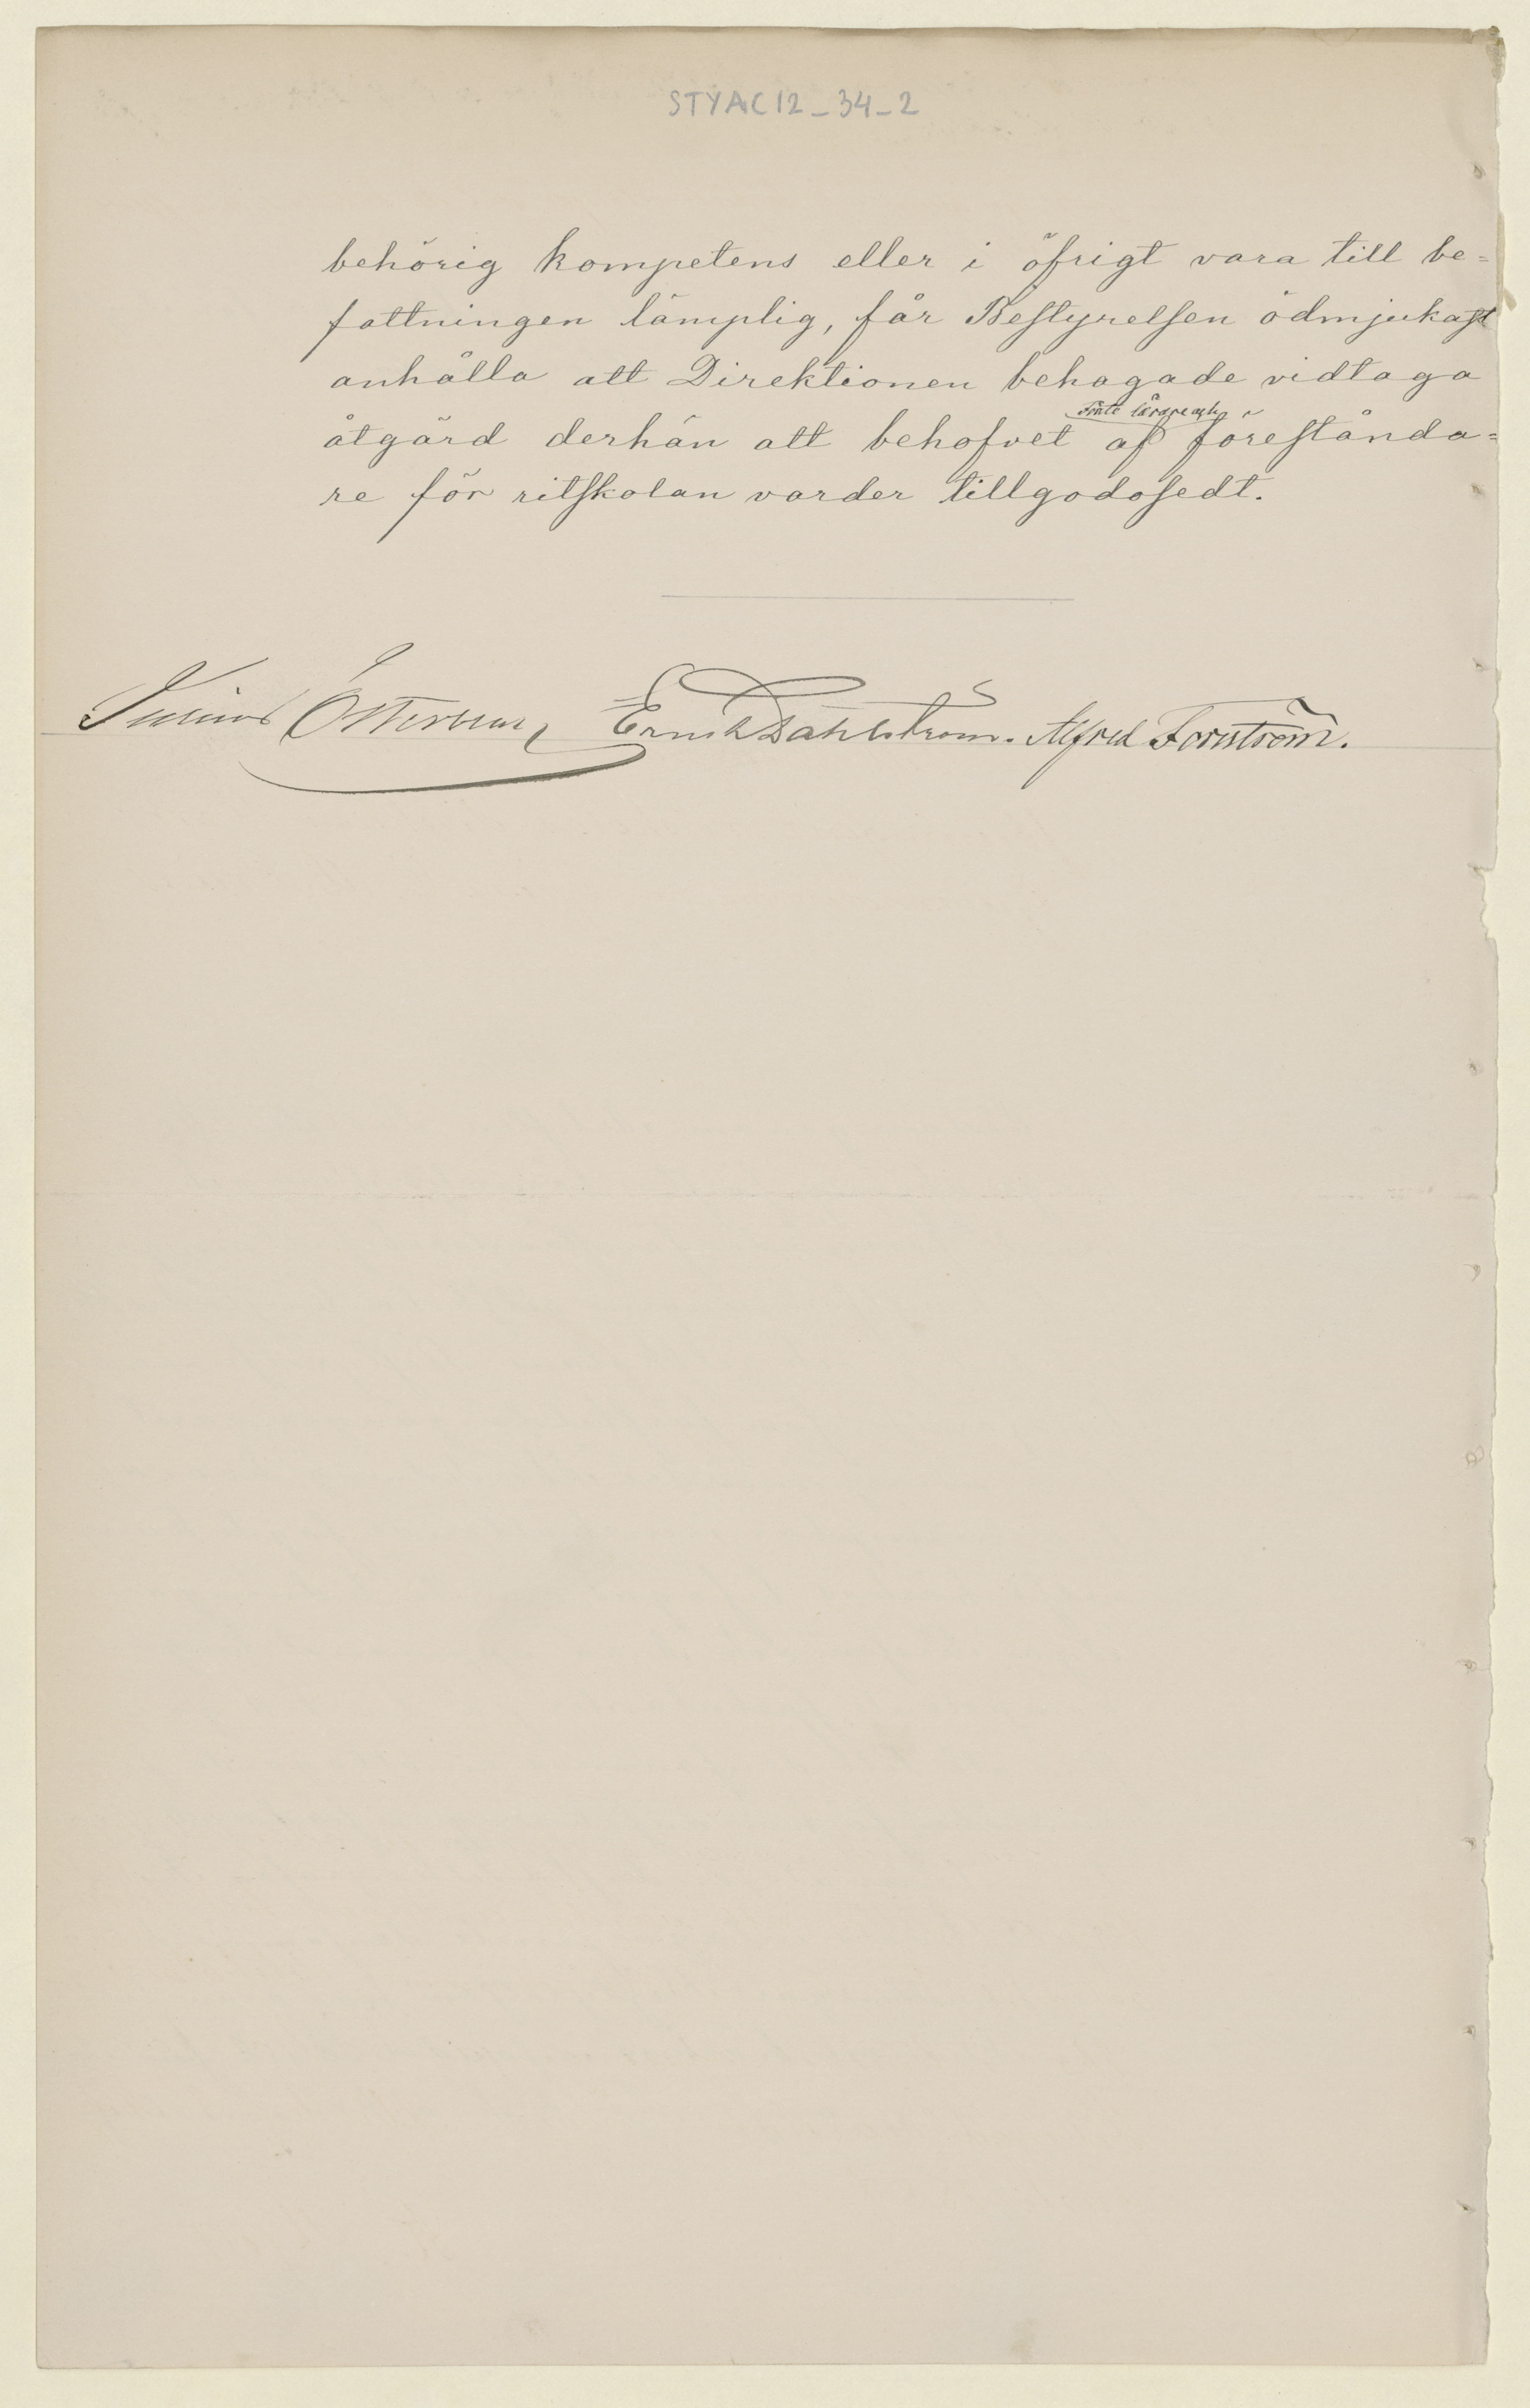 STYAC12_34_2
behörig kompetens eller i öfrigt vara till be=
fattningen lämplig, får Bestyrelsen ödmjukast
anhålla att Direktionen behagade vidtaga
lärare och
åtgärd derhän att behofvet af förestånda=
re för ritskolan varder tillgodosedt.
Ernst Dahlström. Alfred Forström.